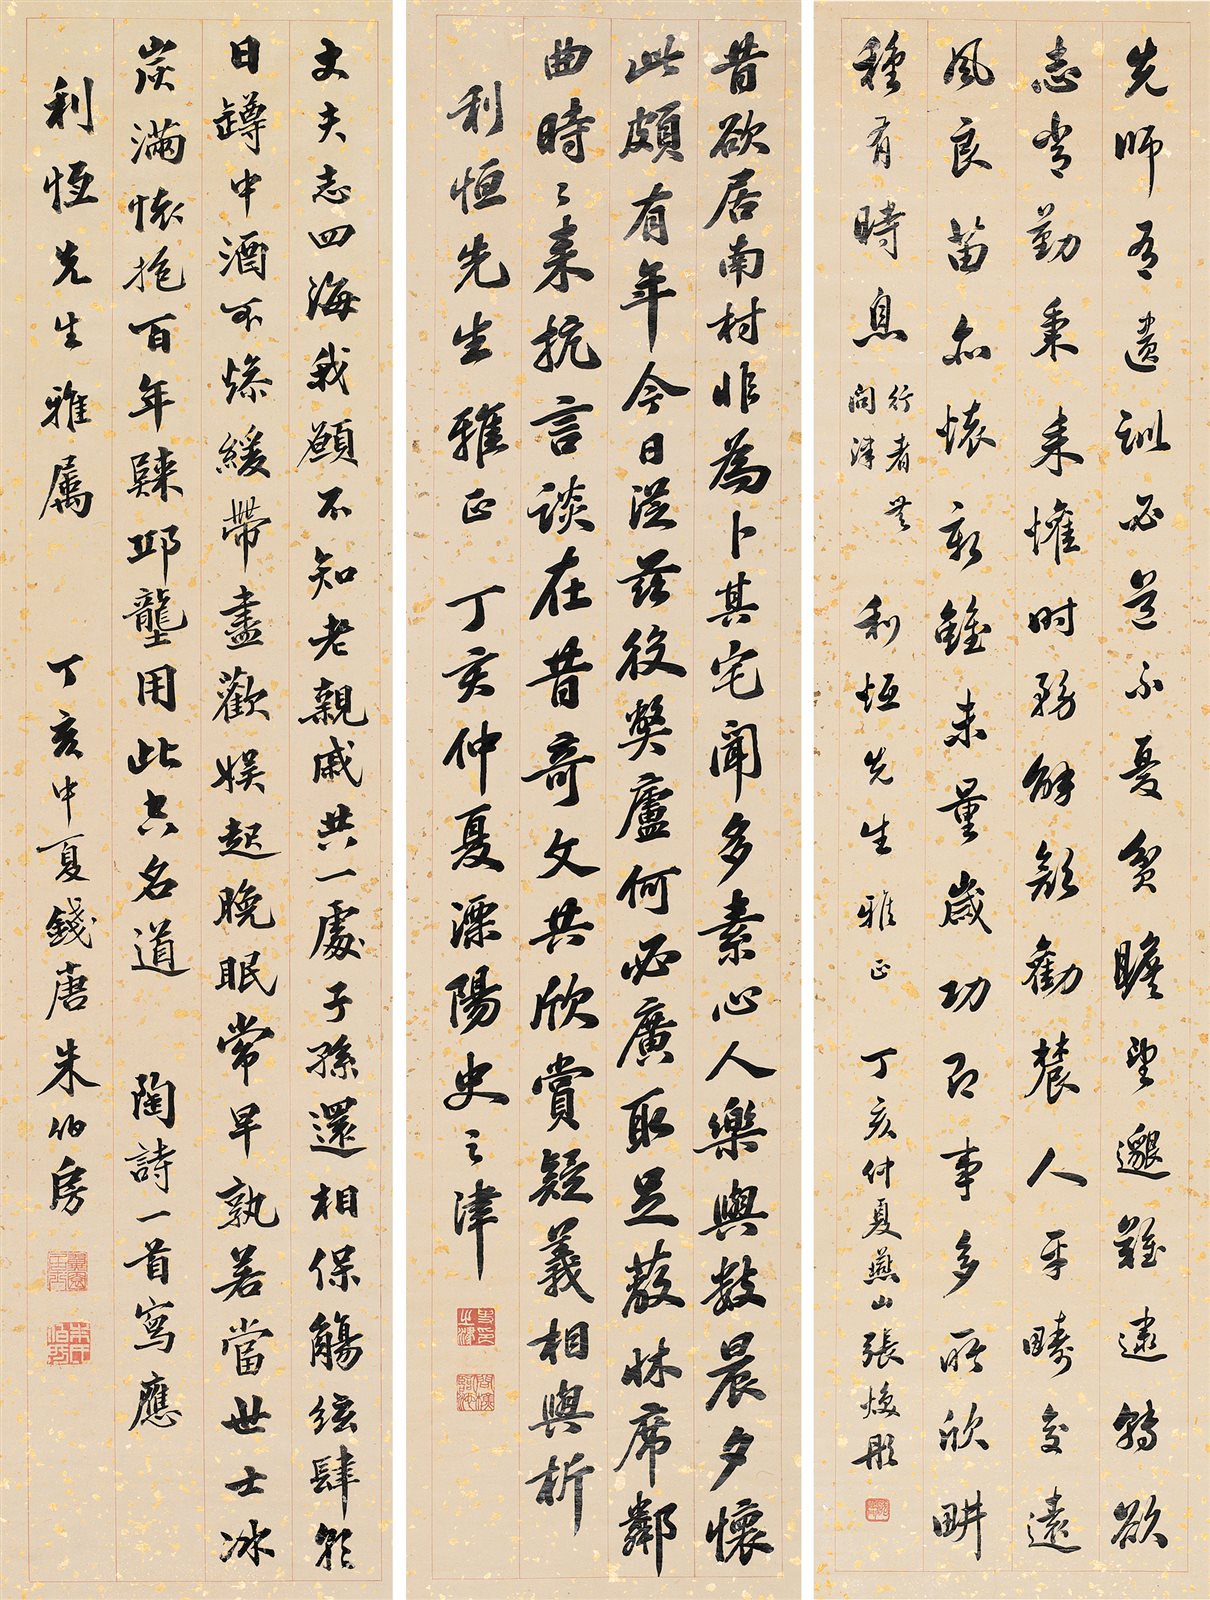 先師有遺訓必道不憂貧瞻望邈難逮轉欲
志長勤秉耒懽時務解顏勸農人平疇交遠
風良苗亦懷新雖未量歲功即事多所欣畊
種有時息行者
問津
利恒先生雅正 丁亥仲夏燕山張煥彤
昔欲居南村非為卜其宅聞多素心人樂與數晨夕懷
此頗有年今日從茲役獘廬何必廣取足蔽牀席鄰
曲時〻來抗言談在昔奇文共欣賞疑義相與析
利恒先生雅正 丁亥仲夏溧陽史之津
丈夫志四海我願不知老親戚共一處子孫還相保觴絃肆朝
日罇中酒不燥緩帶盡歡娛起晚眠常早孰若當世士冰
炭滿懷抱百年歸邱壟用此空名道 陶詩一首寫應
利恆先生雅屬 丁亥中夏錢唐朱伯房